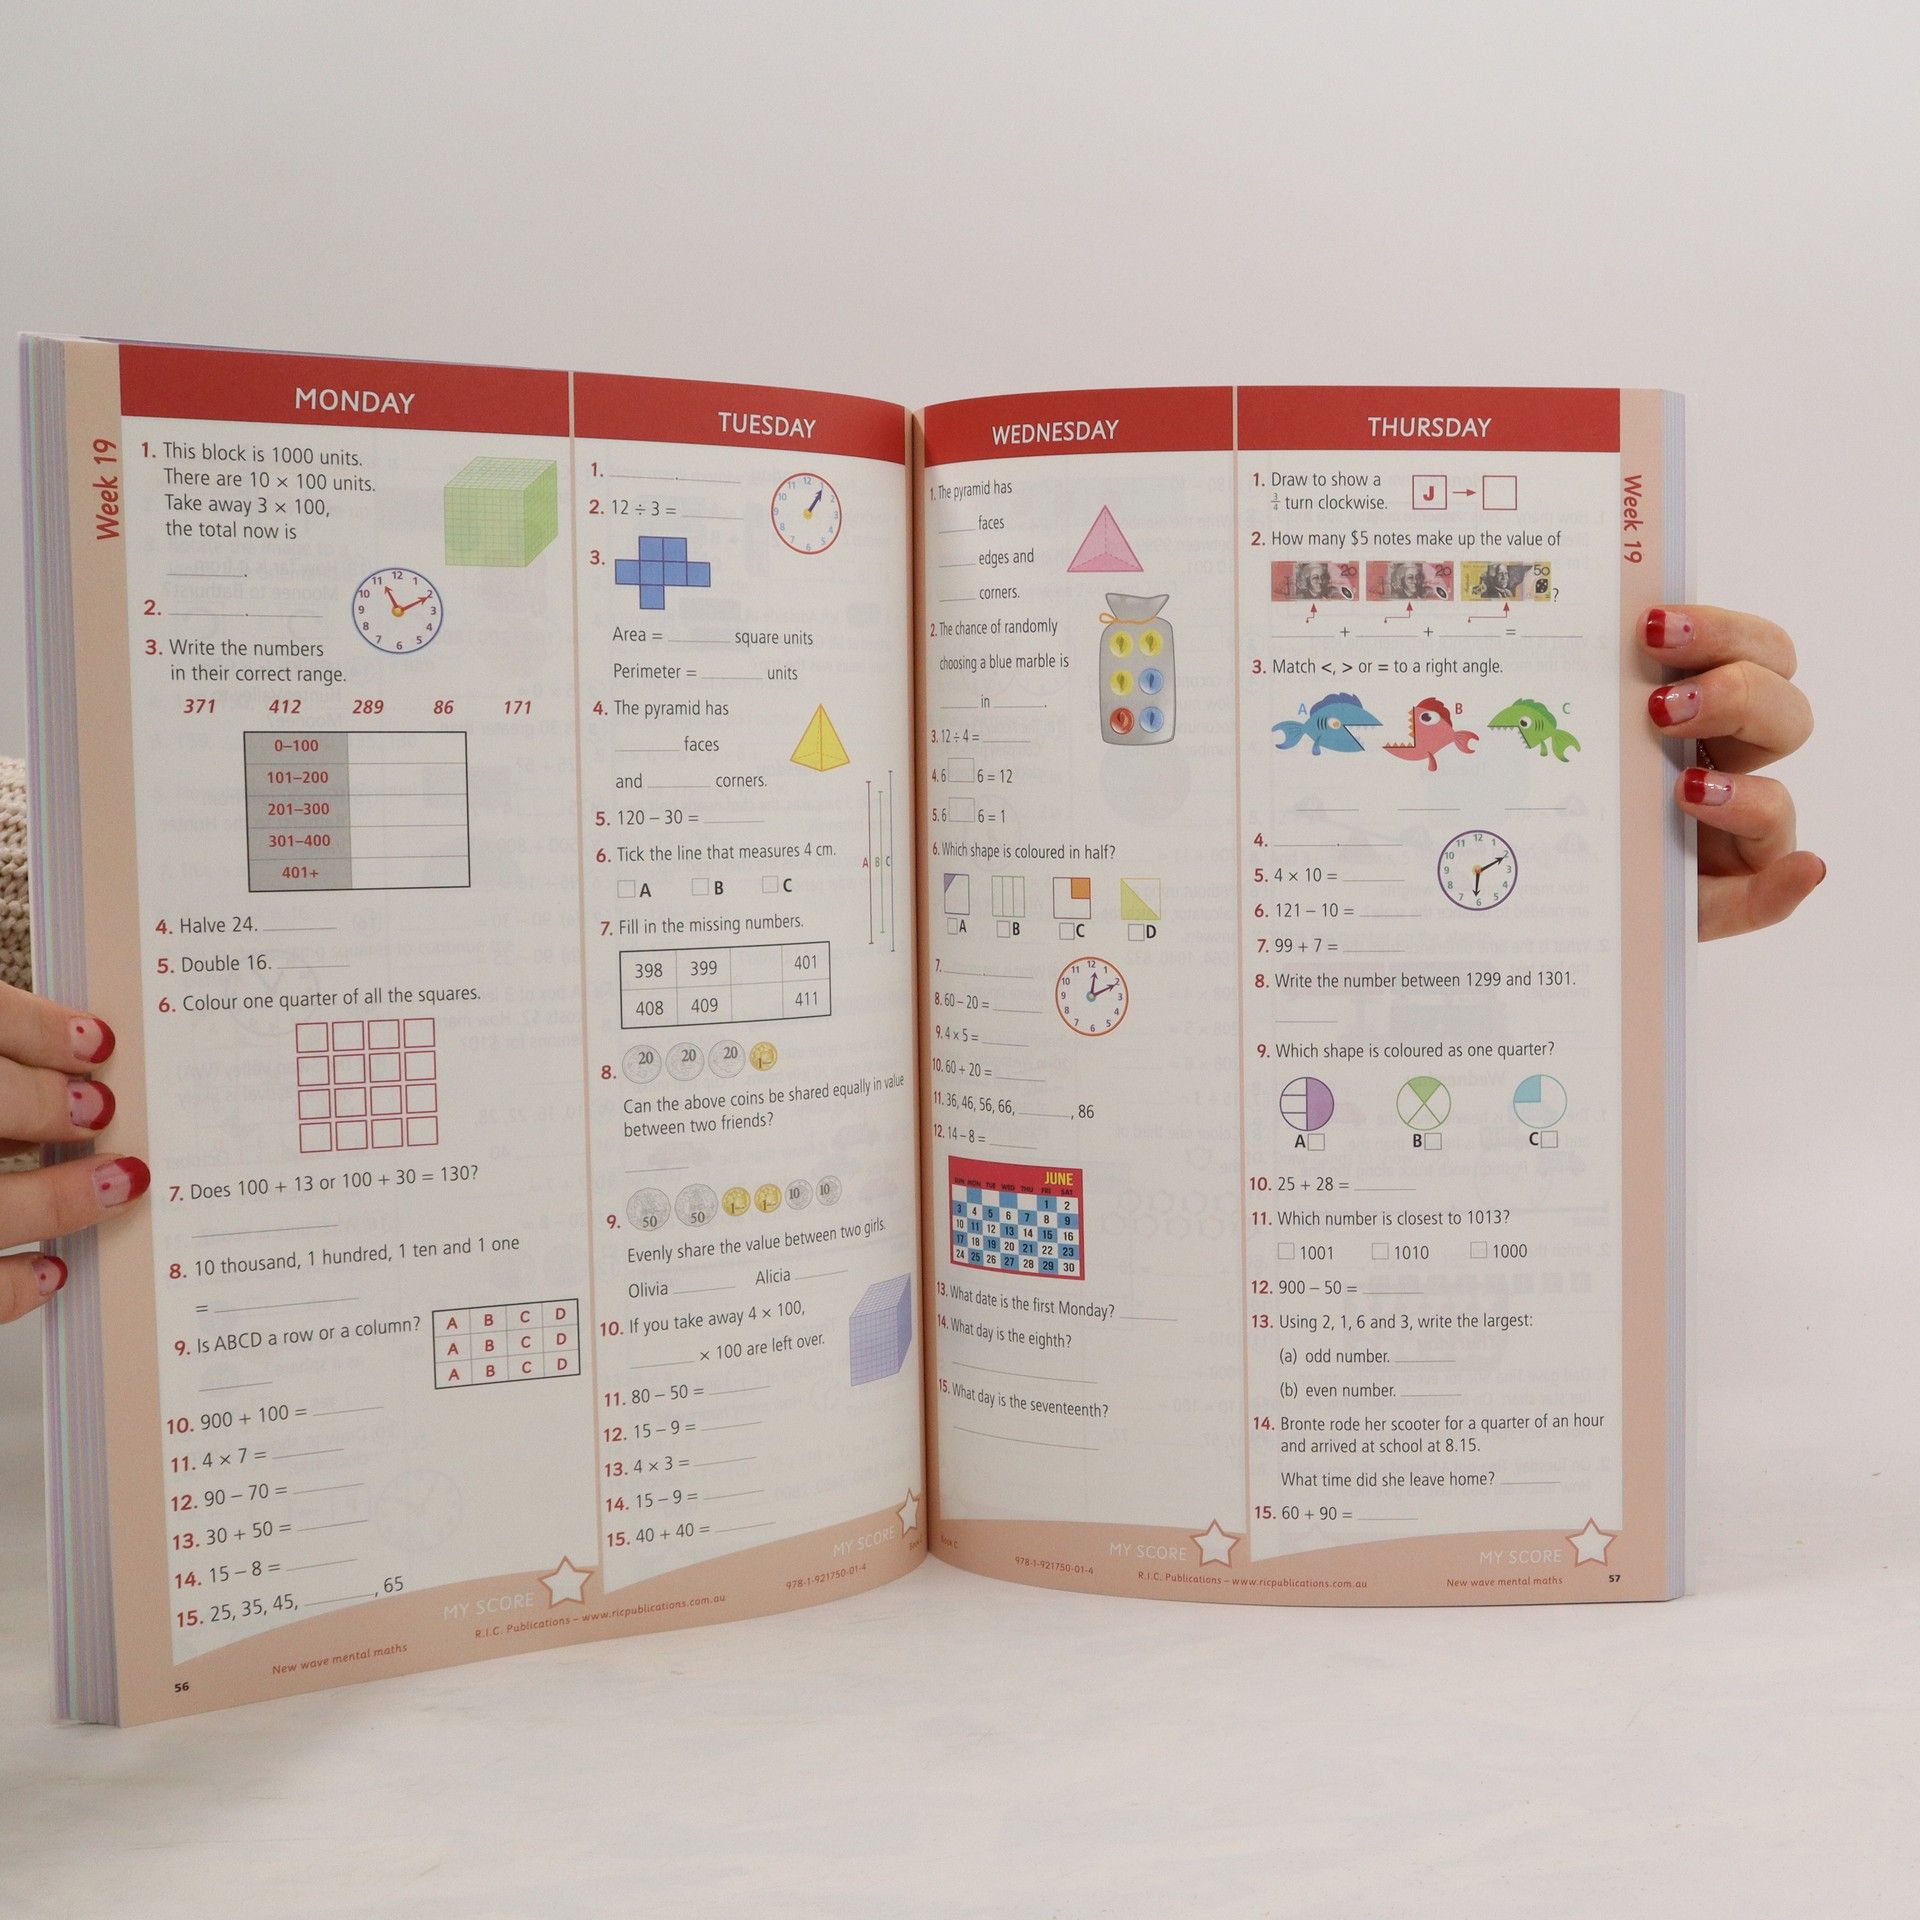 Week 19
MONDAY
1. This block is 1000 units.
There are 10 × 100 units.
Take away 3 × 100,
the total now is
________.
2. ________.________
12 1 2 3 4 5 6 7 8 9 10 11
3. Write the numbers
in their correct range.
371 412 289 86 171
0–100
101–200
201–300
301–400
401+
4. Halve 24. ________
5. Double 16. ________
6. Colour one quarter of all the squares.
7. Does 100 + 13 or 100 + 30 = 130?
8. 10 thousand, 1 hundred, 1 ten and 1 one
= ________
9. Is ABCD a row or a column?
A B C D
A B C D
A B C D
10. 900 + 100 = ________
11. 4 × 7 = ________
12. 90 – 70 = ________
13. 30 + 50 = ________
14. 15 – 8 = ________
15. 25, 35, 45, ________, 65
MY SCORE
New wave mental maths
R.I.C. Publications – www.ricpublications.com.au
56
TUESDAY
1. ________.________
12 1 2 3 4 5 6 7 8 9 10 11
2. 12 ÷ 3 = ________
3.
Area = ________ square units
Perimeter = ________ units
4. The pyramid has
________ faces
and ________ corners.
5. 120 – 30 = ________
6. Tick the line that measures 4 cm.
A B C
A B C
7. Fill in the missing numbers.
398 399 401
408 409 411
8. 20 20 20 1
Can the above coins be shared equally in value
between two friends?
9. 50 50 1 1 10 10
Evenly share the value between two girls.
Olivia ________ Alicia ________
10. If you take away 4 × 100,
________ × 100 are left over.
11. 80 – 50 = ________
12. 15 – 9 = ________
13. 4 × 3 = ________
14. 15 – 9 = ________
15. 40 + 40 = ________
MY SCORE
978-1-921750-01-4
WEDNESDAY
1. The pyramid has
________ faces
________ edges and
________ corners.
2. The chance of randomly
choosing a blue marble is
________ in ________.
3. 12 ÷ 4 = ________
4. 6 □ 6 = 12
5. 6 □ 6 = 1
6. Which shape is coloured in half?
A B C D
7. ________.________
12 1 2 3 4 5 6 7 8 9 10 11
8. 60 – 20 = ________
9. 4 x 5 = ________
10. 60 + 20 = ________
11. 36, 46, 56, 66, ________, 86
12. 14 – 8 = ________
JUNE
SUN MON TUE WED THU FRI SAT
1 2
3 4 5 6 7 8 9
10 11 12 13 14 15 16
17 18 19 20 21 22 23
24 25 26 27 28 29 30
13. What date is the first Monday? ________
14. What day is the eighth?
15. What day is the seventeenth?
MY SCORE
Book C
978-1-921750-01-4
R.I.C. Publications – www.ricpublications.com.au
THURSDAY
Week 19
1. Draw to show a
3/4 turn clockwise.
J
2. How many $5 notes make up the value of
20 20 50 ?
________ + ________ + ________ = ________
3. Match <, > or = to a right angle.
A B C
4. ________.________
12 1 2 3 4 5 6 7 8 9 10 11
5. 4 × 10 = ________
6. 121 – 10 = ________
7. 99 + 7 = ________
8. Write the number between 1299 and 1301.
9. Which shape is coloured as one quarter?
A B C
10. 25 + 28 = ________
11. Which number is closest to 1013?
1001 1010 1000
12. 900 – 50 = ________
13. Using 2, 1, 6 and 3, write the largest:
(a) odd number. ________
(b) even number. ________
14. Bronte rode her scooter for a quarter of an hour
and arrived at school at 8.15.
What time did she leave home? ________
15. 60 + 90 = ________
MY SCORE
New wave mental maths
57